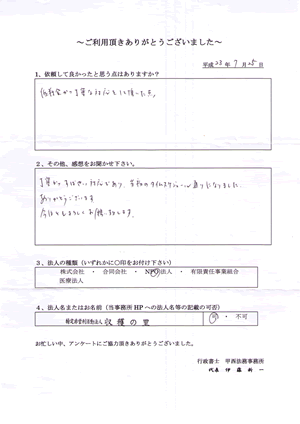 ～ご利用頂きありがとうございました～
平成23年7月25日
1、依頼して良かったと思う点はありますか？
低料金かつ丁寧な対応をして頂いた点。
2、その他、感想をお聞かせ下さい。
丁寧かつすばやい対応であり、
ありがとうございます
今後ともよろしくお願い致します。
3、法人の種類（いずれかに○印をお付け下さい）
株式会社 ・ 合同会社 ・ NPO法人 ・ 有限責任事業組合
医療法人
4、法人名またはお名前（当事務所HPへの法人名等の記載の可否）
特定非営利活動法人 収穫の里
可 ・ 不可
お忙しい中、アンケートにご協力頂きありがとうございました。
行政書士 甲西法務事務所
代表 伊藤 新一